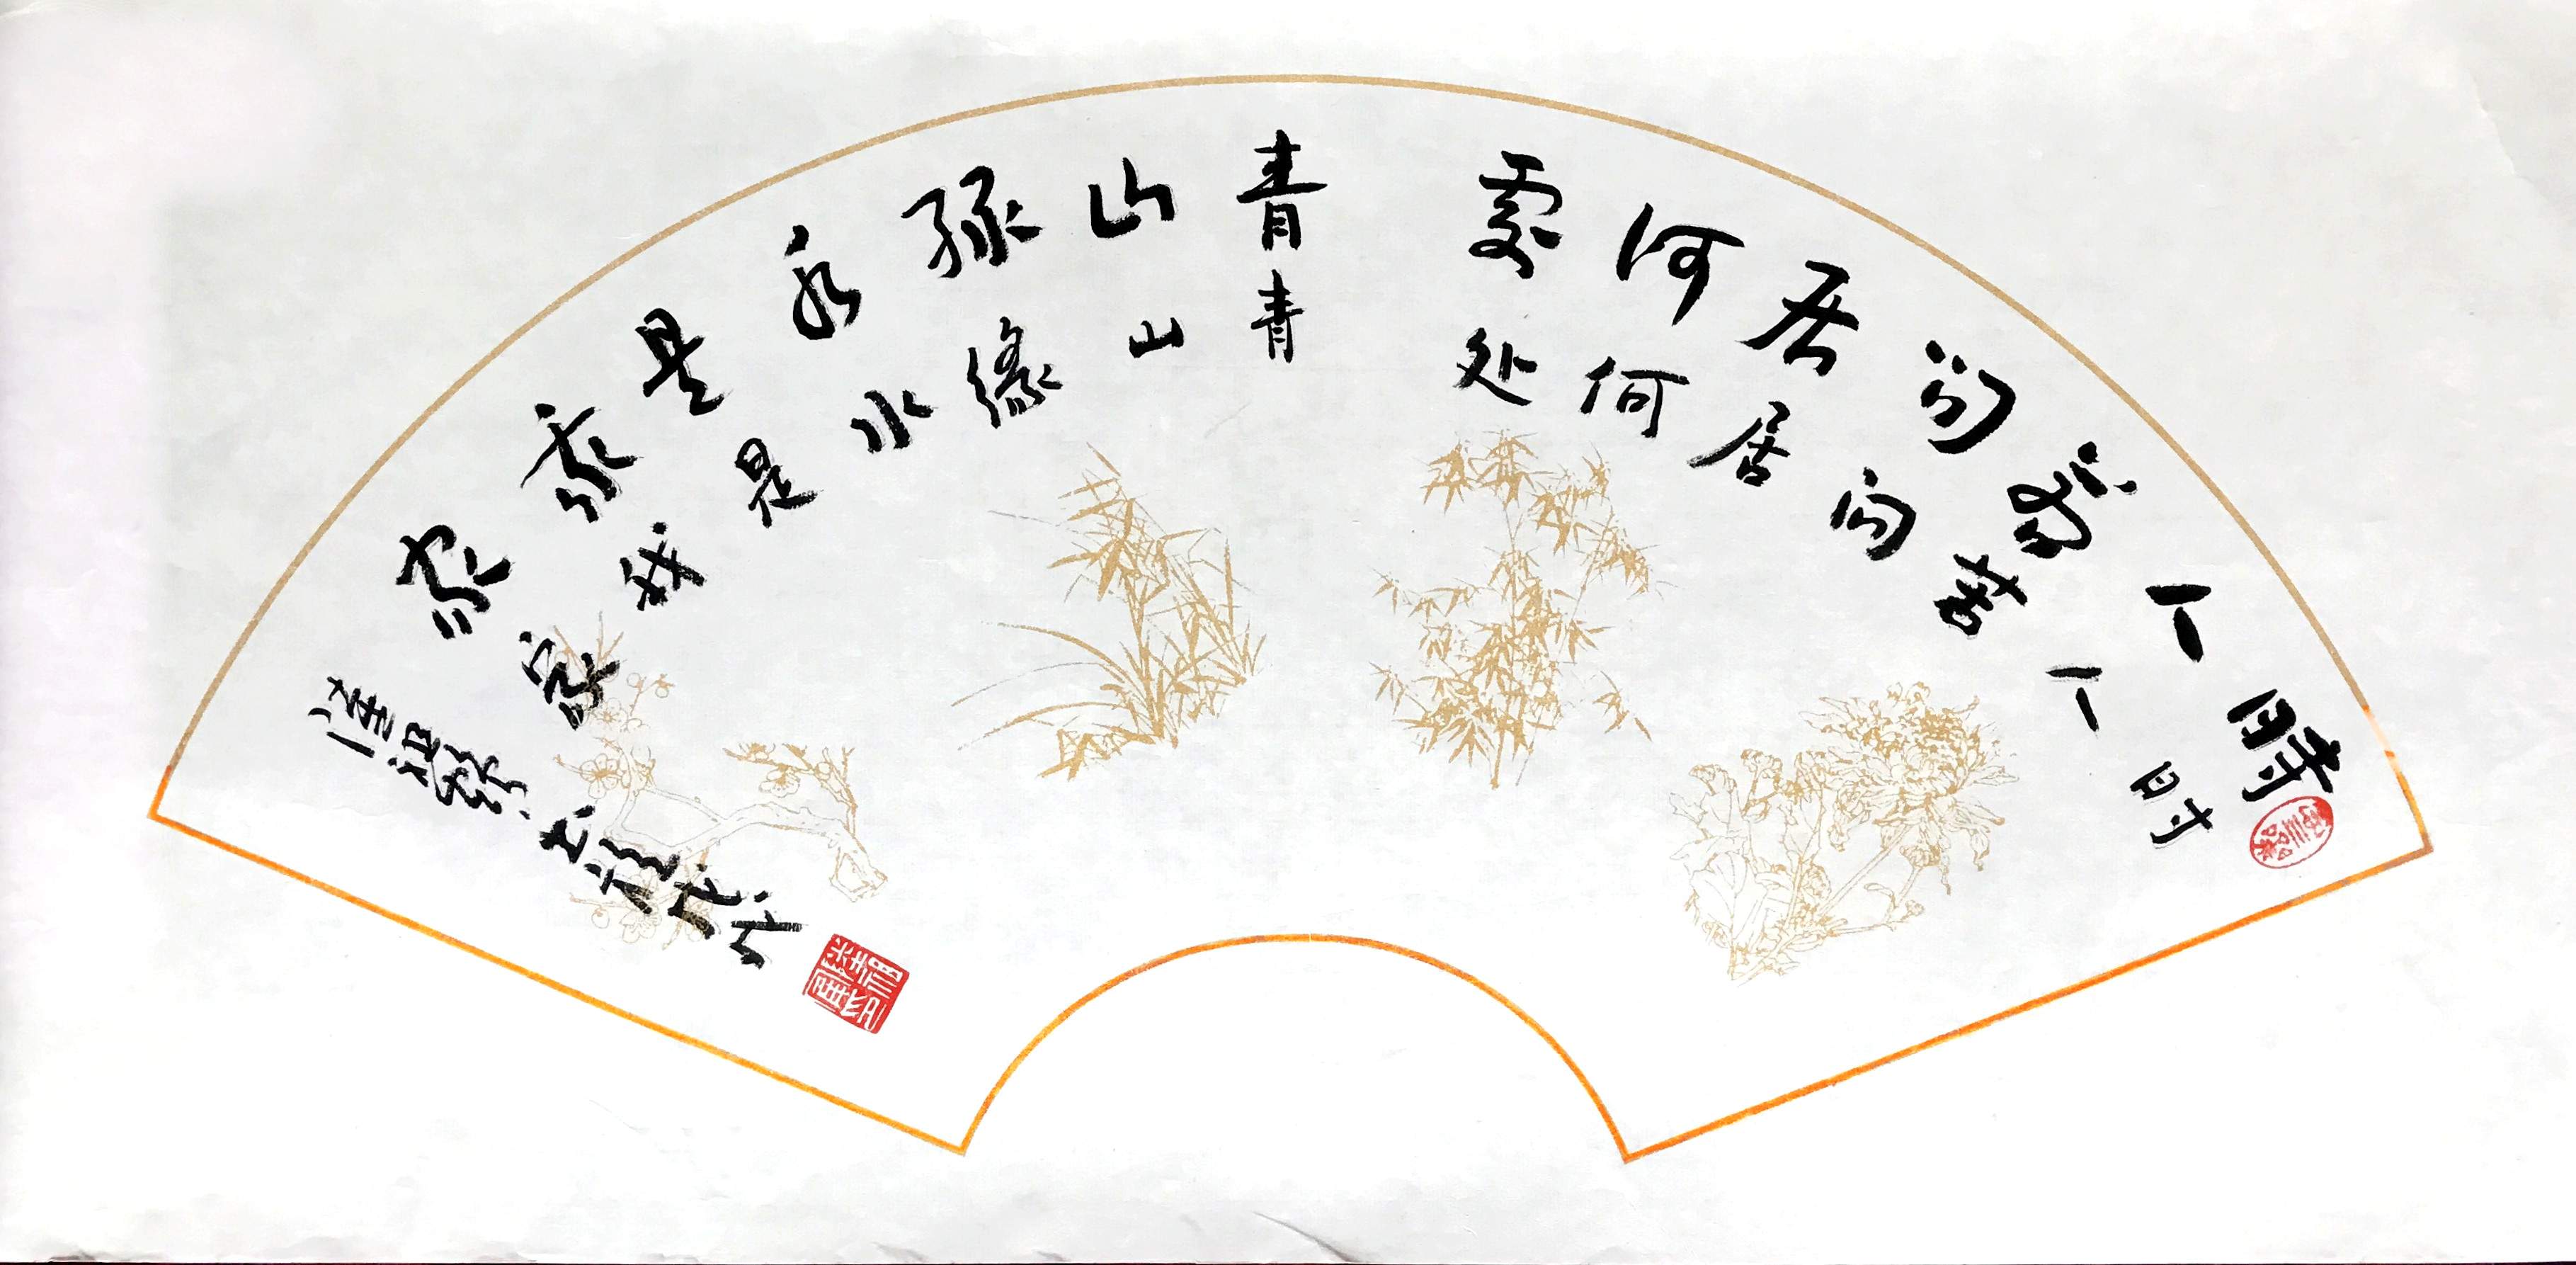 時人若问居何處
时人若问居何处
青山緑水是我家
青山緣水是我家